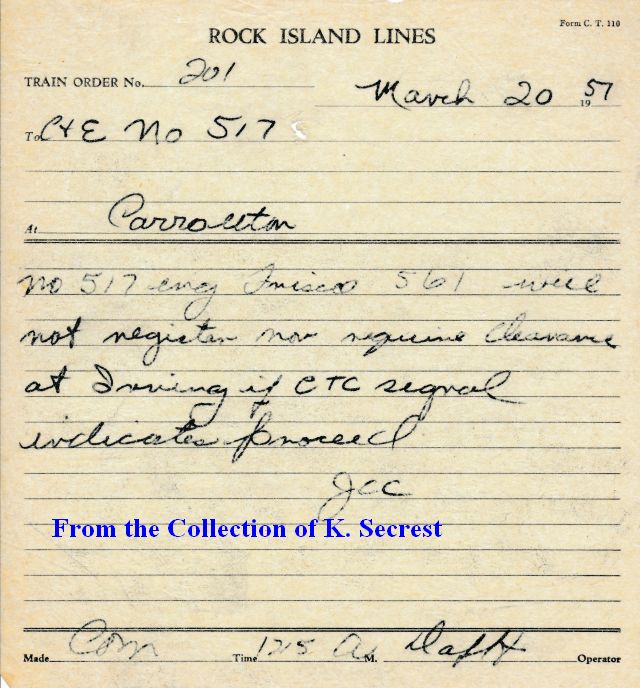 Form C. T. 110
ROCK ISLAND LINES
TRAIN ORDER No. 201
March 20 1957
To C&E No 517
At Carrollton
No 517 eng Frisco 561 will
not register nor require Clearance
at Irving if CTC signal
indicates proceed
JCC
From the Collection of K. Secrest
Made Com Time 1215 A M. Operator